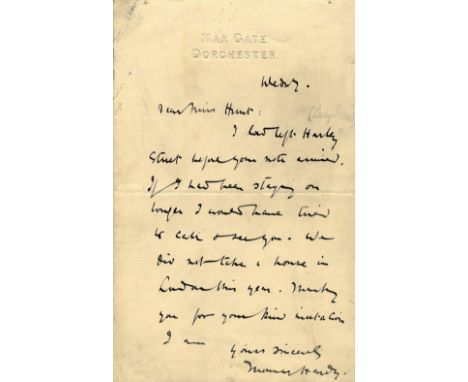 MAX GATE,
DORCHESTER.
Wedny.
Dear Miss Hunt:
I had left Harley
Street before your note arrived.
If I had been staying on
longer I would have tried
to call & see you. We
did not take a house in
London this year. Thanking
you for your kind invitation
I am
Yours sincerely
Thomas Hardy.